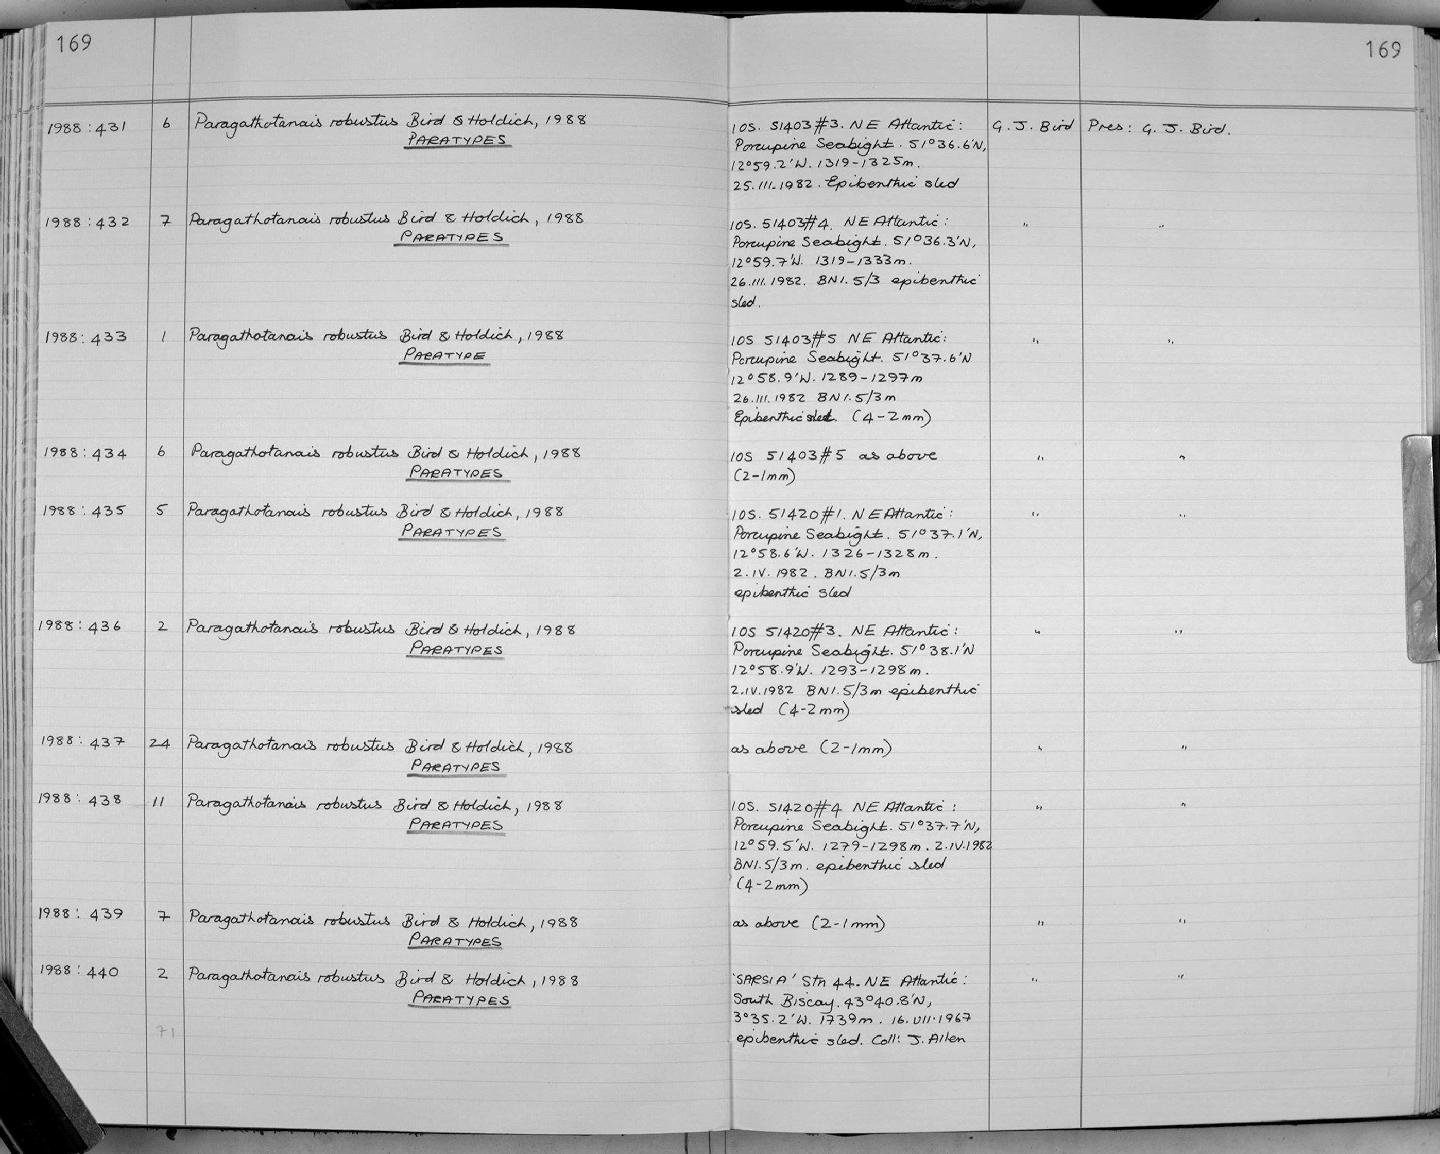 169
169
1988:431 6 Paragathotanais robustus Bird & Holdich, 1988
PARATYPES
IOS. 51403#3. NE Atlantic: G. J. Bird Pres: G. J. Bird.
Porcupine Seabight. 51°36.6'N,
12°59.2'W. 1319-1325m.
25.III.1982. Epibenthic sled
1988:432 7 Paragathotanais robustus Bird & Holdich, 1988
PARATYPES
IOS. 51403#4. NE Atlantic: " "
Porcupine Seabight. 51°36.3'N,
12°59.7'W. 1319-1333m.
26.III.1982. BN1.5/3 epibenthic
sled.
1988:433 1 Paragathotanais robustus Bird & Holdich, 1988
PARATYPE
IOS 51403#5 NE Atlantic: " "
Porcupine Seabight. 51°37.6'N
12°58.9'W. 1289-1297m
26.III.1982 BN1.5/3m
Epibenthic sled. (4-2mm)
1988:434 6 Paragathotanais robustus Bird & Holdich, 1988
PARATYPES
IOS 51403#5 as above " "
(2-1mm)
1988:435 5 Paragathotanais robustus Bird & Holdich, 1988
PARATYPES
IOS. 51420#1. NE Atlantic: " "
Porcupine Seabight. 51°37.1'N,
12°58.6'W. 1326-1328m.
2.IV.1982. BN1.5/3m
epibenthic sled
1988:436 2 Paragathotanais robustus Bird & Holdich, 1988
PARATYPES
IOS 51420#3. NE Atlantic: " "
Porcupine Seabight. 51°38.1'N
12°58.9'W. 1293-1298m.
2.IV.1982 BN1.5/3m epibenthic
sled (4-2mm)
1988:437 24 Paragathotanais robustus Bird & Holdich, 1988
PARATYPES
as above (2-1mm) " "
1988:438 11 Paragathotanais robustus Bird & Holdich, 1988
PARATYPES
IOS. 51420#4 NE Atlantic: " "
Porcupine Seabight. 51°37.7'N,
12°59.5'W. 1279-1298m. 2.IV.1982
BN1.5/3m. epibenthic sled
(4-2mm)
1988:439 7 Paragathotanais robustus Bird & Holdich, 1988
PARATYPES
as above (2-1mm) " "
1988:440 2 Paragathotanais robustus Bird & Holdich, 1988
PARATYPES
'SARSIA' Stn 44. NE Atlantic: " "
South Biscay. 43°40.8'N,
3°35.2'W. 1739m. 16.VII.1967
epibenthic sled. Coll: J. Allen
71